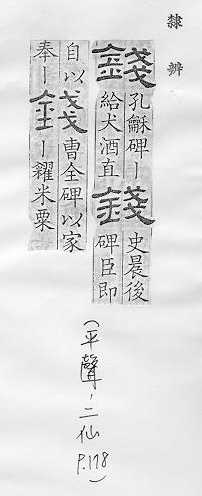 隸辨
錢 孔龢碑丨給犬酒直 錢 史晨後碑臣即
自以奉丨 錢 曹全碑以家丨糴米粟
(平聲,二仙 P.178)